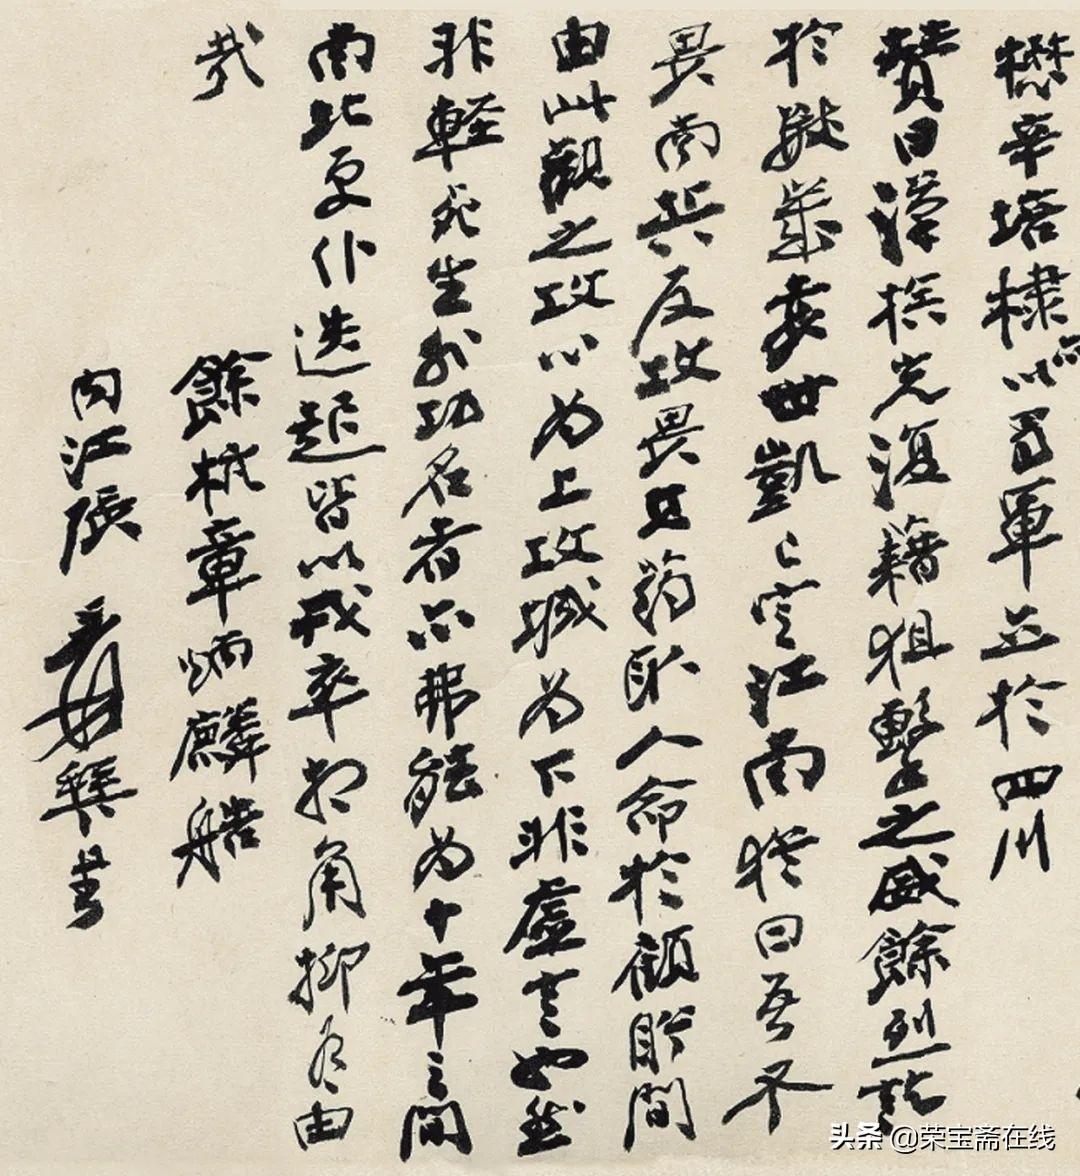 懋辛培棣亦以蜀軍立於四川
贊曰漢族光復藉狙擊之威餘烈訖
於業袁世凱已定江南猶曰吾不
畏南兵反攻畏其葯取人命於顧盼間
由此觀之攻心為上攻城為下非虛言也然
非輕死生外功名者亦弗能為十年之間
南北更仆迭起皆以戎卒相角抑有由
哉
餘杭章炳麟艁
内江張爰書
头条 @荣宝斋在线